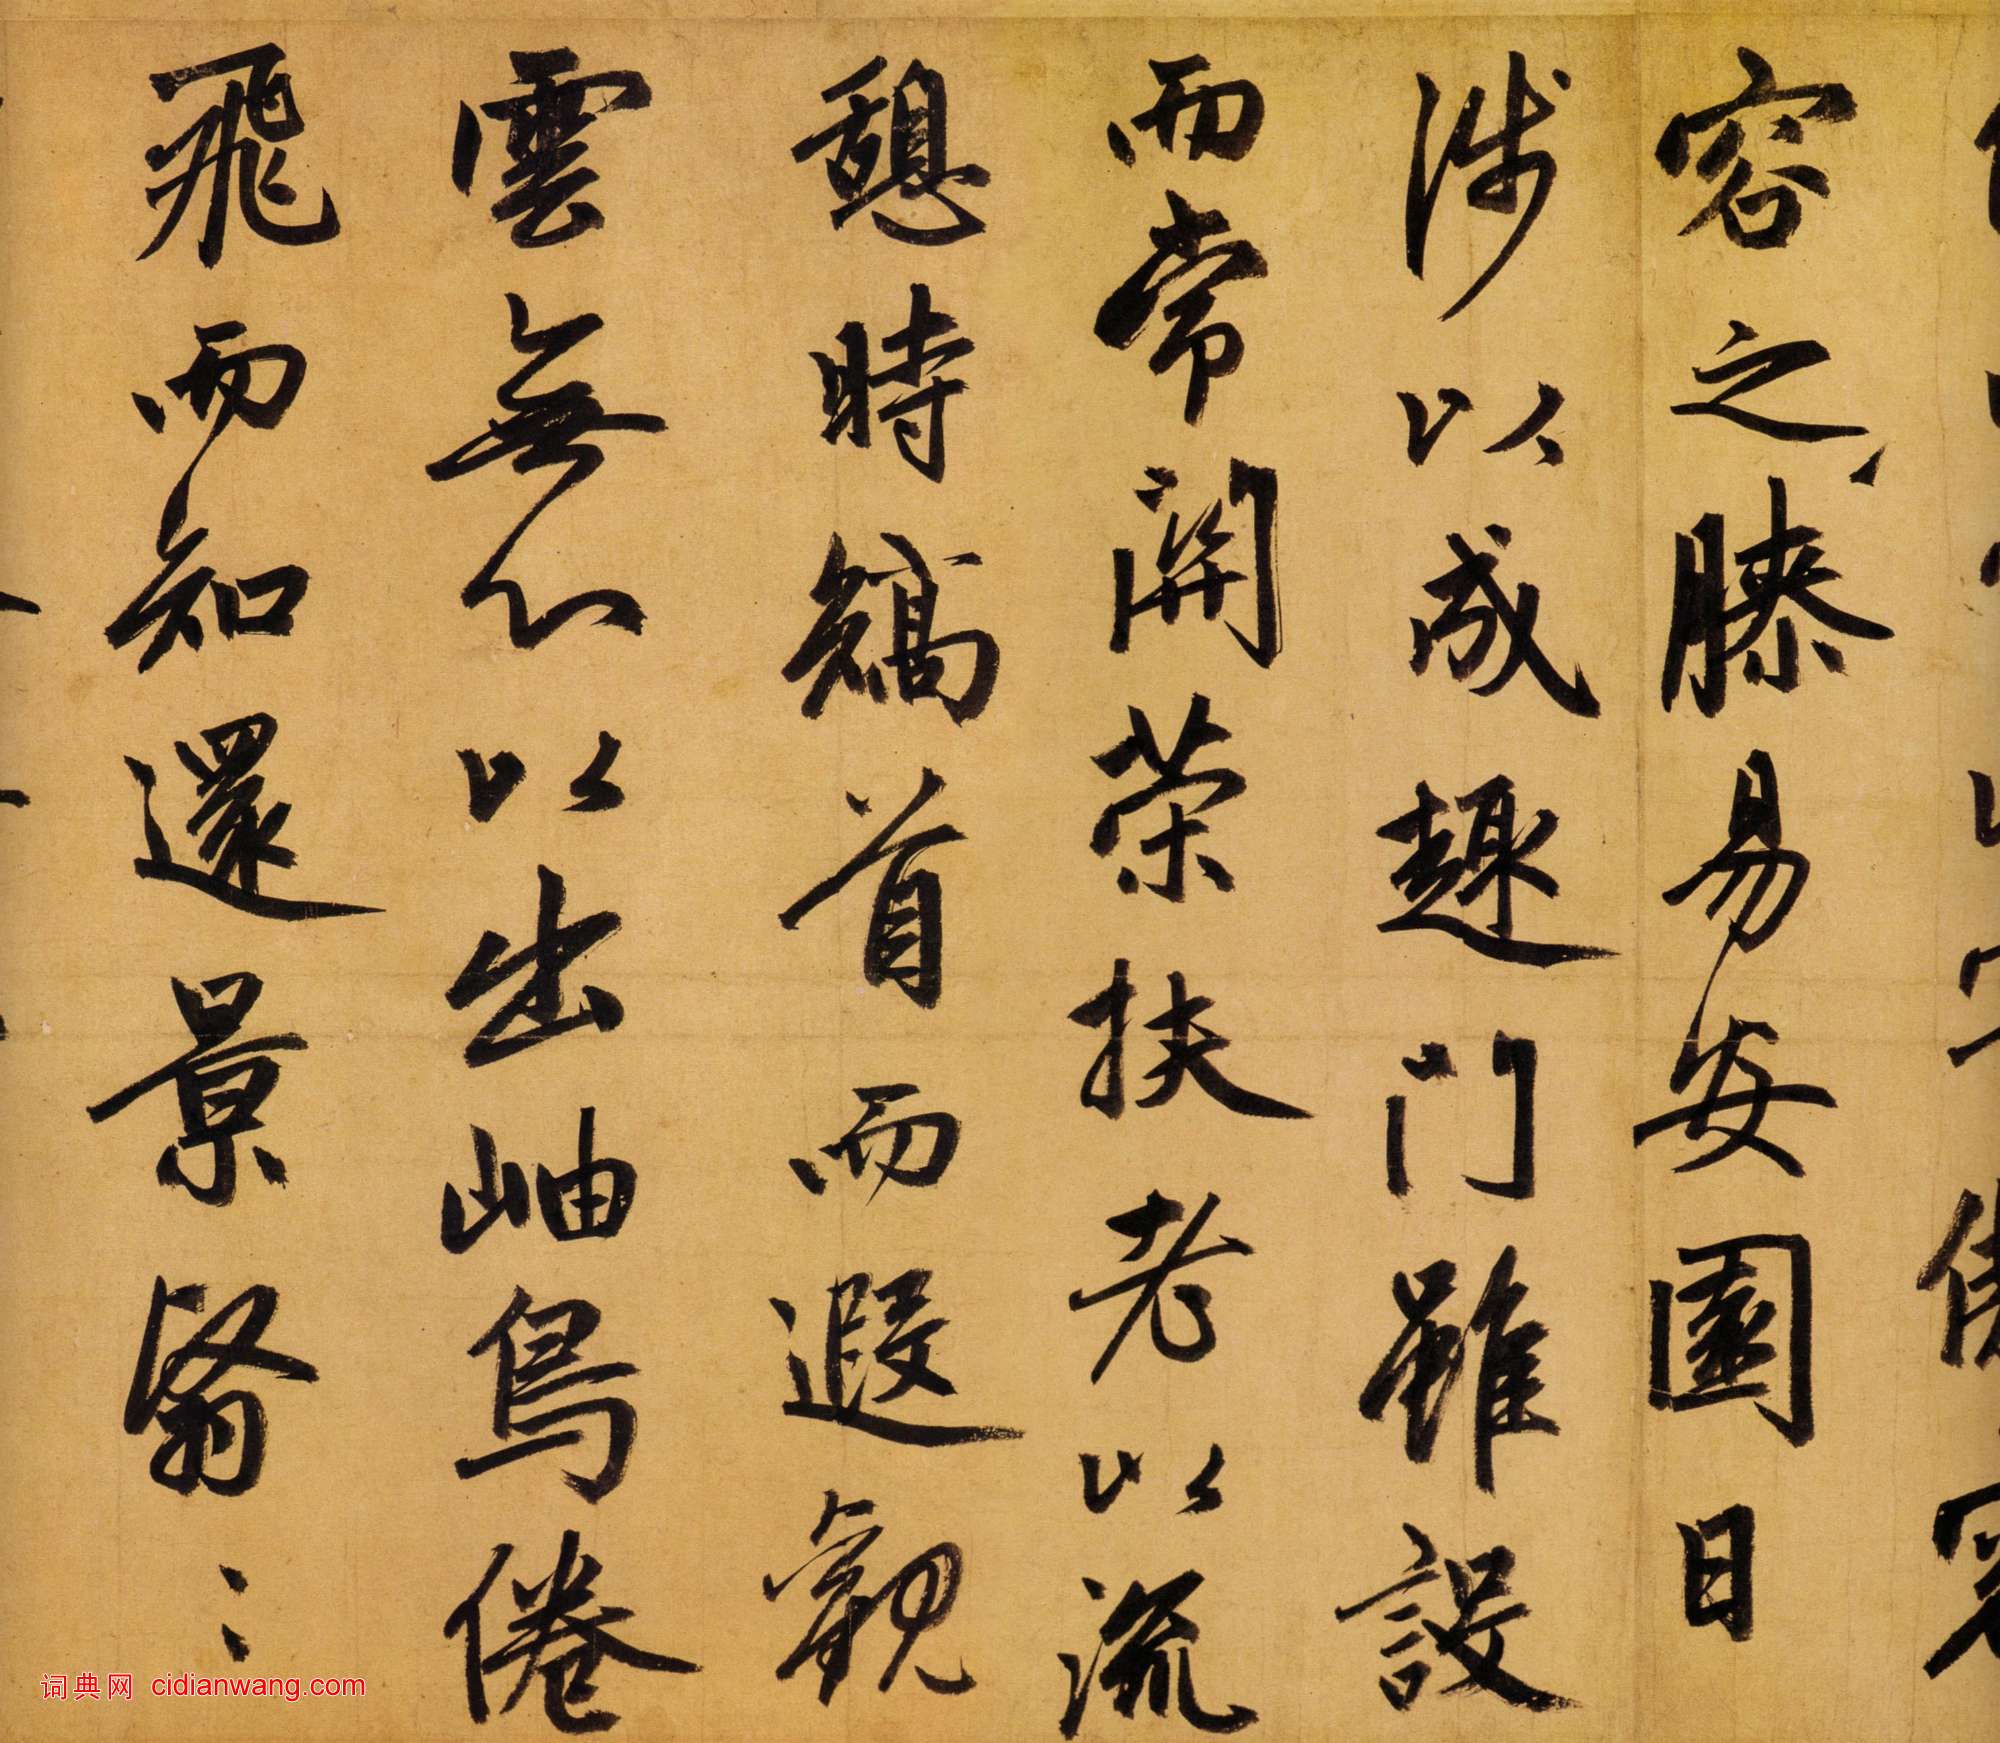 容之膝易安園日
涉以成趣門雖設
而常關策扶老以流
憩時矯首而遐觀
雲無心以出岫鳥倦
飛而知還景翳〻
词典网 cidianwang.com